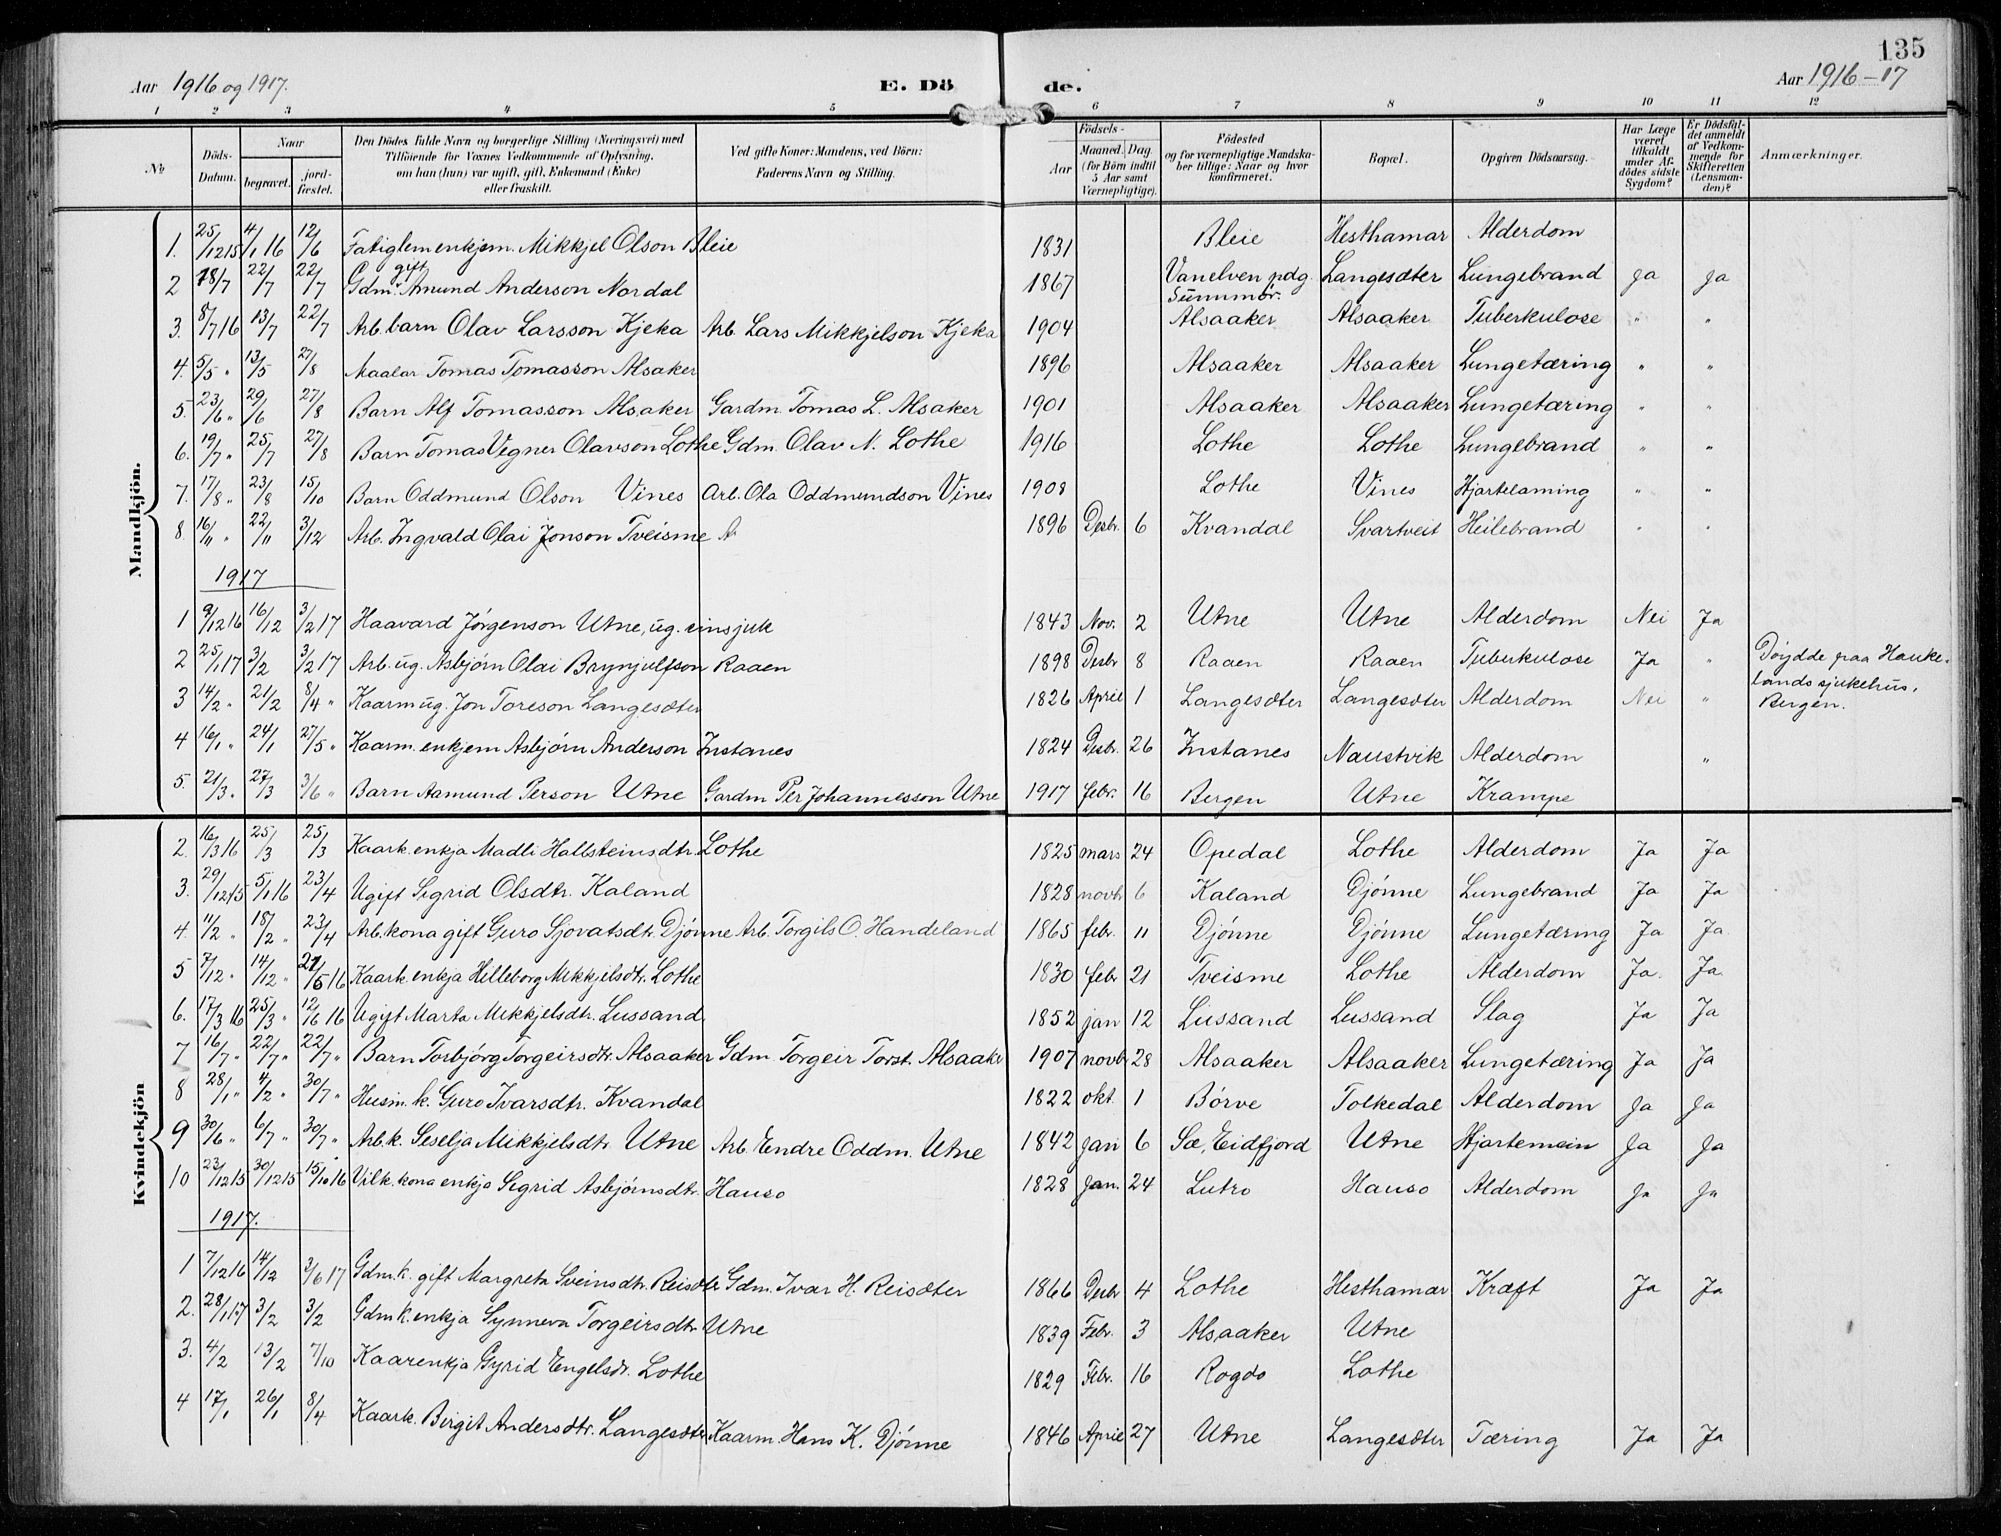 135
Aar 1916 og 1917.
E. Dö
de.
Aar 1916-17
1 2 3 4 5 6 7 8 9 10 11 12
No
Döds-Datum.
Naar
begravet.
jord-fæstet.
Den Dödes fulde Navn og borgerlige Stilling (Næringsvei) med
Tilföiende for Voxnes Vedkommende af Oplysning,
om han (hun) var ugift, gift, Enkemand (Enke)
eller fraskilt.
Ved gifte Koner: Mandens, ved Börn:
Faderens Navn og Stilling.
Födsels-
Aar
Maaned. Dag.
(for Börn indtil
5 Aar samt
Værnepligtige).
Födested
og for værnepligtige Mandska-
ber tillige: Naar og hvor
konfirmeret.
Bopæl.
Opgiven Dödsaarsag.
Har Læge
været
tilkaldt
under Af-
dödes sidste
Sygdom?
Er Dödsfal-
det anmeldt
af Vedkom-
mende for
Skifteretten
(Lensman-
den)?
Anmærkninger.
Mandkjön.
1. 25/12 15 4/1 16 12/6 Fatiglem enkjem. Mikkjel Olson Bleie 1831 Bleie Hesthamar Alderdom
2 18/7 22/7 22/7 Gdm. gift Amund Anderson Nordal 1867 Vanelven pdg. Sunnmör. Langesæter Lungebrand Ja Ja
3. 8/7 16 13/7 22/7 Arb. barn Olav Larsson Kjeka Arb. Lars Mikkjelson Kjeka 1904 Alsaaker Alsaaker Tuberkulose " "
4. 5/5 " 13/5 27/8 Maalar Tomas Tomasson Alsaker 1896 Alsaaker Alsaaker Lungetæring " "
5. 23/6 " 29/6 27/8 Barn Alf Tomasson Alsaker Gardm. Tomas L. Alsaker 1901 Alsaaker Alsaaker Lungetæring " "
6. 19/7 " 25/7 27/8 Barn Tomas Vegner Olavson Lothe Gdm. Olav N. Lothe 1916 Lothe Lothe Lungebrand " "
7. 17/8 " 23/8 15/10 Barn Oddmund Olson Vines Arb. Ola Oddmundson Vines 1908 Lothe Vines Hjartelaming " "
8. 16/11 " 22/11 3/12 Arb. Ingvald Olai Jonson Tveisme 1896 Desbr. 6 Kvandal Svartveit Heilebrand " "
1917
1 9/12 16 16/12 3/2 17 Haavard Jörgenson Utne, ug. sinsjuk 1843 Nov. 2 Utne Utne Alderdom Nei Ja
2 25/1 17 3/2 3/2 17 Arb. ug. Asbjörn Olai Brynjulfson Raaen 1898 Desbr 8 Raaen Raaen Tuberkulose Ja " Döydde paa Hauke-
lands sjukehus,
Bergen.
3 14/2 " 21/2 8/4 " Kaarm ug. Jon Toreson Langesæter 1826 April 1 Langesæter Langesæter Alderdom Nei "
4 16/1 " 24/1 27/5 " Kaarm. enkjem Asbjörn Anderson Instanes 1824 Desbr. 26 Instanes Naustvik Alderdom "
5. 21/3 " 27/3 3/6 " Barn Aamund Person Utne Gardm Per Johannesson Utne 1917 febr. 16 Bergen Utne Krampe
Kvindekjön
2. 16/3 16 25/3 25/3 Kaark. enkja Madli Hallsteinsdtr. Lothe 1825 mars 24 Opedal Lothe Alderdom Ja Ja
3. 29/12 15 5/1 16 23/4 Ugift Sigrid Olsdtr. Kaland 1828 novb 6 Kaland Djönne Lungebrand Ja Ja
4. 11/2 " 18/2 " 23/4 Arb. kona gift Guro Sjovatsdtr. Djönne Arb. Torgils O. Handeland 1865 febr. 11 Djönne Djönne Lungetæring Ja Ja
5 7/12 " 14/12 " 21/5 16 Kaark. enkja Helleborg Mikkjelsdtr. Lothe 1830 febr 21 Tveisme Lothe Alderdom Ja. Ja
6. 17/3 16 25/3 " 12/16 16 Ugift Marta Mikkjelsdtr. Lussand 1852 jan 12 Lussand Lussand Slag Ja Ja
7 16/7 " 22/7 " 22/7 " Barn Torbjörg Torgeirsdtr. Alsaaker Gdm. Torgeir Torst. Alsaaker 1907 novb 28 Alsaaker Alsaaker Lungetæring Ja Ja
8 28/1 " 4/2 " 30/7 " Husm. k. Guro Ivarsdtr. Kvandal 1822 okt. 1 Börve Tolkedal Alderdom Ja Ja
9 30/6 " 6/7 " 30/7 " Arb. k. Seselja Mikkjelsdtr. Utne Arb. Endre Oddm. Utne 1842 jan 6 Sæ, Eidfjord Utne Hjartemein Ja Ja
10 23/12 15 30/12 15 15/10 16 Vilk. kona enkja Sigrid Asbjörnsdtr. Hauso 1828 Jan. 24 Lutro Hauso Alderdom Ja Ja
1917.
1 7/12 16 14/12 3/6 17 Gdm. k. gift Margreta Sveinsdtr. Reisæter Gdm. Ivar H. Reisæter 1866 Desbr 4 Lothe Hesthamar Kræft Ja Ja
2. 28/1 17 3/2 3/2 Gdm k. enkja Synneva Torgeirsdtr Utne 1839 Febr. 3 Alsaaker Utne
3. 4/2 13/2 7/10 Kaarenkja Gyrid Engelsdr. Lothe 1829 Febr. 16 Rogdo Lothe
4 17/1 26/1 8/4 Kaark. Birgit Andersdtr. Langesæter Kaarm. Hans K. Djönne 1846 April 27 Utne Langesæter Tæring Ja Ja